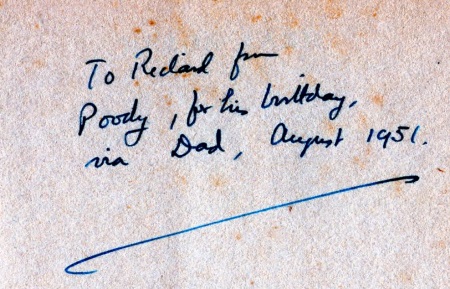 To Richard from
Poody, for his birthday,
via Dad, August 1951.